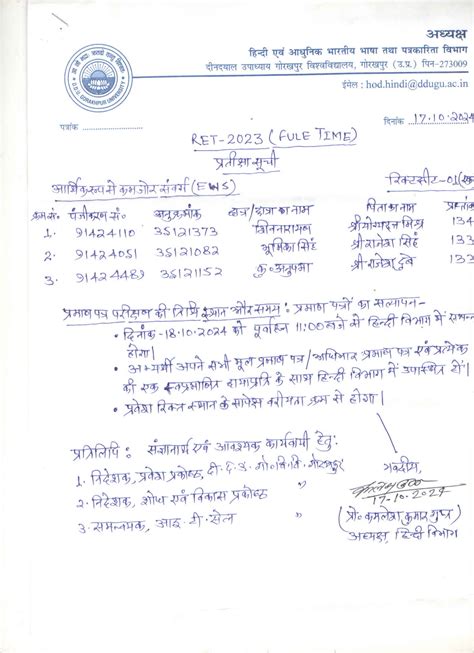 अध्यक्ष
हिन्दी एवं आधुनिक भारतीय भाषा तथा पत्रकारिता विभाग
दीनदयाल उपाध्याय गोरखपुर विश्वविद्यालय, गोरखपुर (उ.प्र.) पिन-273009
ईमेल : hod.hindi@ddugu.ac.in
D.D.U. GORAKHPUR UNIVERSITY
पत्रांक ........................
दिनांक 17.10.2024
RET-2023 (FULE TIME)
प्रतीक्षा सूची
आर्थिक रूप से कमजोर संवर्ग (EWS)
रिक्त सीट-01 (एक
क्रम सं० पंजीकरण सं० अनुक्रमांक छात्र/छात्रा का नाम पिता का नाम प्राप्तांक
1. 91424110 35121373 शिवनारायण श्री योगेन्द्र मिश्र 134
2. 91424051 35121082 भूमिका सिंह श्री राजेश सिंह 133
3. 91424489 35121152 कु० अनुपमा श्री राजेश दुबे 133
प्रमाण पत्र परीक्षण की तिथि स्थान और समय : प्रमाण पत्रों का सत्यापन-
• दिनांक-18.10.2024 को पूर्वाहन 11:00 बजे से हिन्दी विभाग में सम्पन्न
होगा।
• अभ्यर्थी अपने सभी मूल प्रमाण पत्र/अधिभार प्रमाण पत्र एवं प्रत्येक
की एक स्वप्रमाणित छायाप्रति के साथ हिन्दी विभाग में उपस्थित हों।
• प्रवेश रिक्त स्थान के सापेक्ष वरीयता क्रम से होगा।
प्रतिलिपि : संज्ञानार्थ एवं आवश्यक कार्यवाही हेतु:
1. निदेशक, प्रवेश प्रकोष्ठ, दी.द.उ.गो.वि.वि. गोरखपुर
2. निदेशक, शोध एवं विकास प्रकोष्ठ "
3. समन्वयक, आइ.टी. सेल "
भवदीय,
17-10-2024
(प्रो० कमलेश कुमार गुप्त)
अध्यक्ष, हिन्दी विभाग